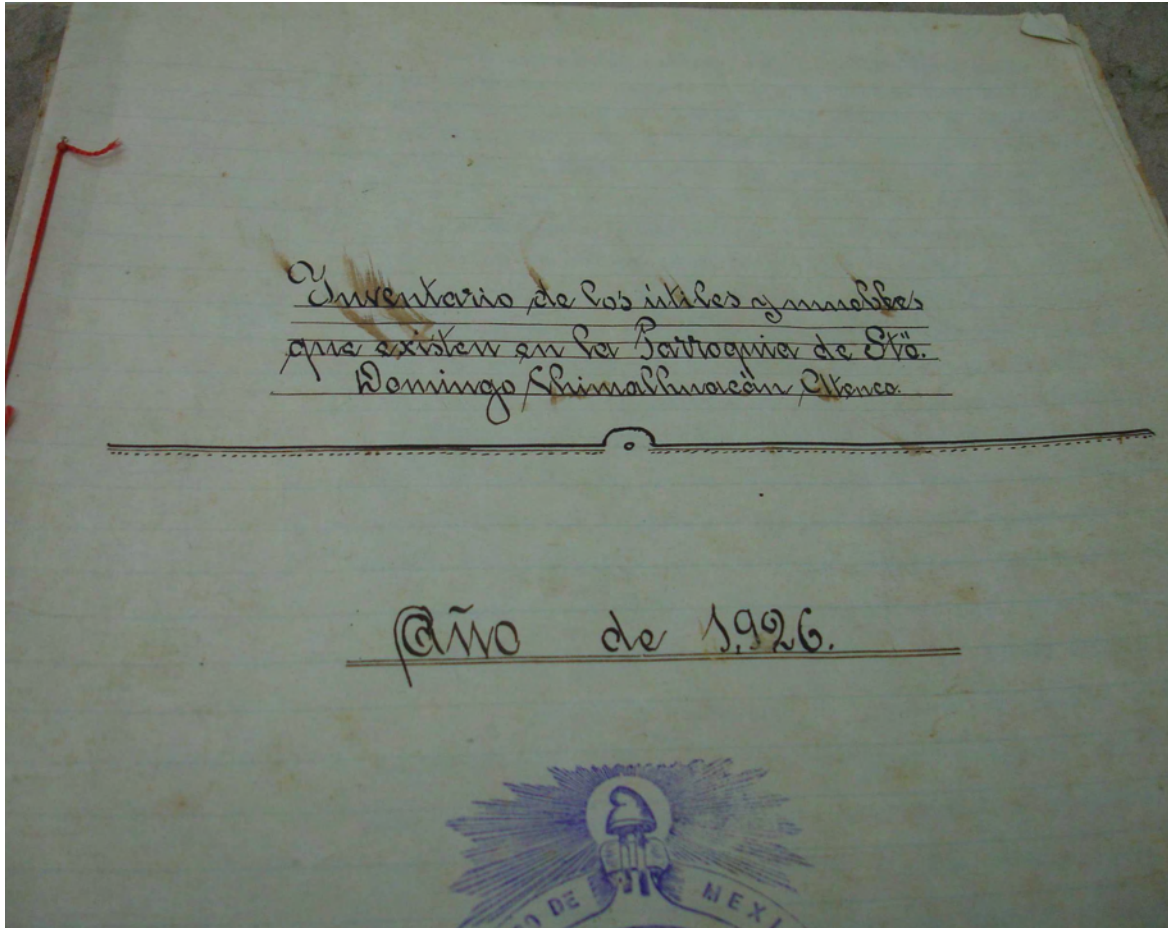 Inventario de los útiles y muebles
que existen en la Parroquia de Stō.
Domingo Chimalhuacán Atenco.
Año de 1,926.
DE MEXI